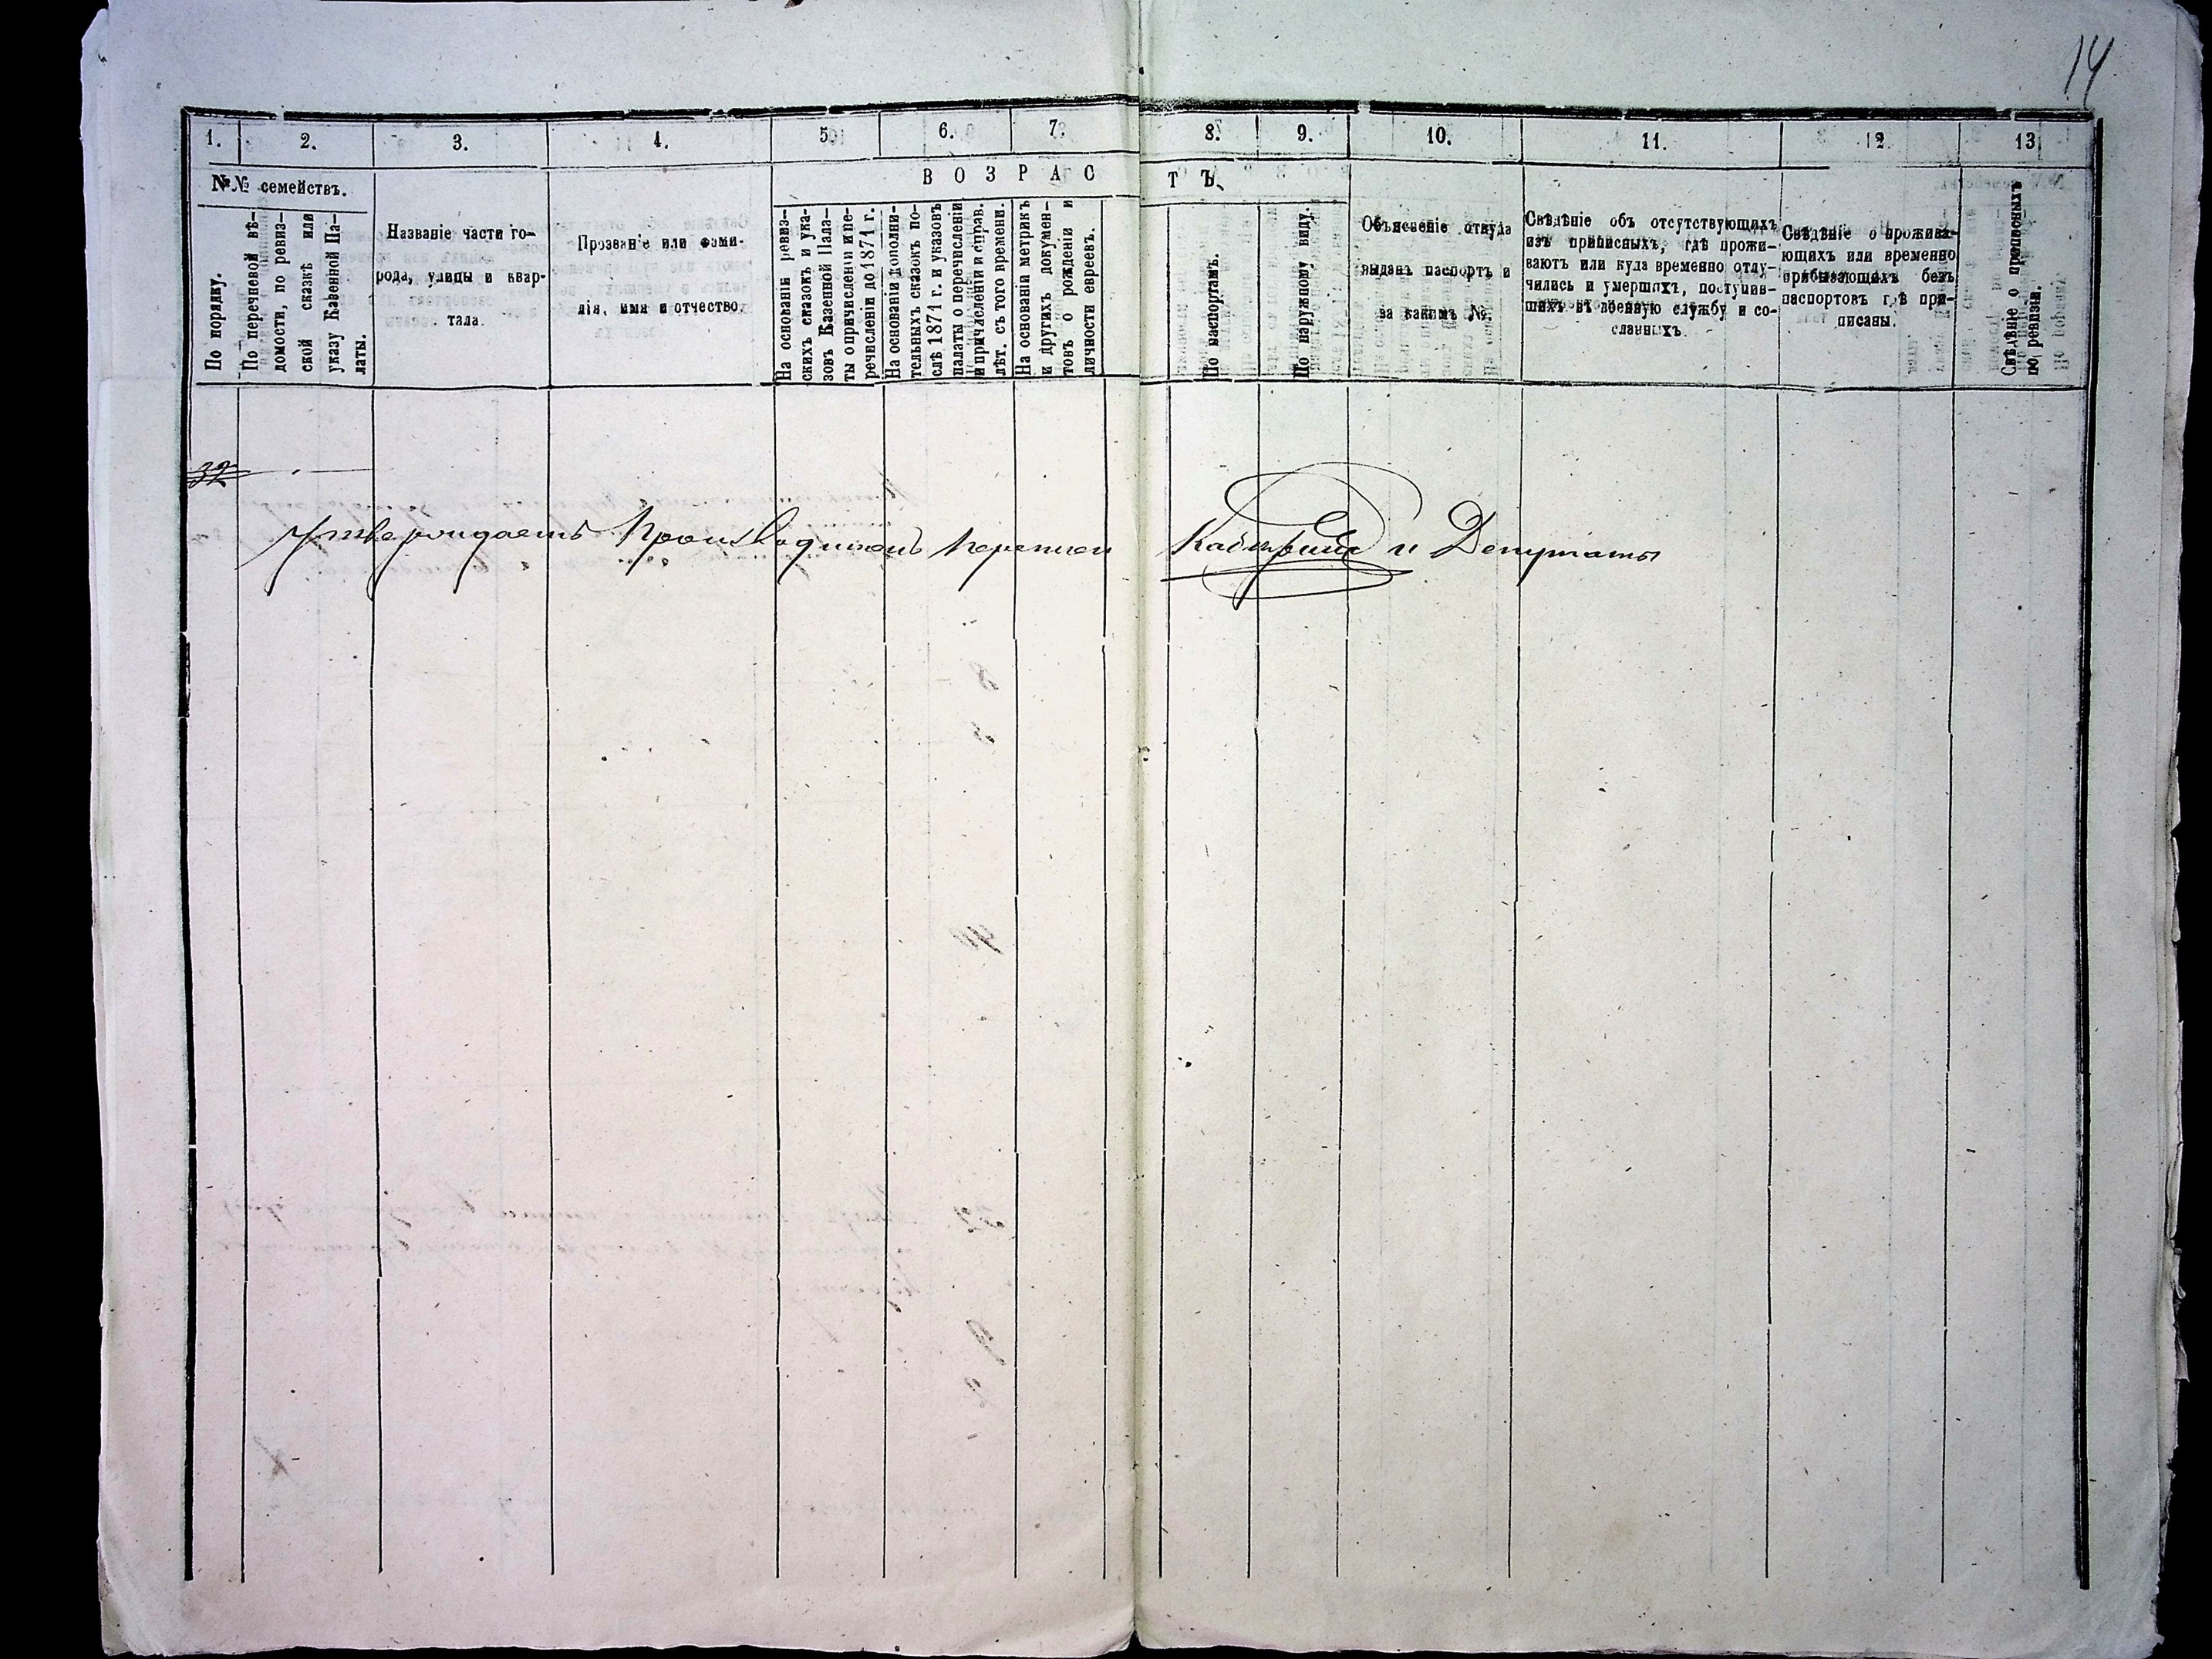 14
1. 2. 3. 4. 5. 6. 7. 8. 9. 10. 11. 12 13
№№ семействъ.
ВОЗРАСТЪ.
По порядку.
По перечневой вѣ-
домости, по ревиз-
ской сказкѣ или
указу Казенной Па-
латы.
Названіе части го-
рода, улицы и квар-
тала.
Прозваніе или фами-
лія, имя и отчество.
На основаніи ревиз-
скихъ сказокъ и ука-
зовъ Казенной Пала-
ты о причисленіи и пе-
речисленіи до 1871 г.
На основаніи дополни-
тельныхъ сказокъ по-
слѣ 1871 г. и указовъ
палаты о перечисленіи
и причисленіи и справ.
лѣт. съ того времени.
На основаніи метрикъ
и другихъ докумен-
товъ о рожденіи и
личности евреевъ.
По паспортамъ.
По наружному виду.
Объясненіе откуда
выданъ паспортъ и
за какимъ №.
Свѣдѣніе объ отсутствующихъ
изъ приписныхъ, гдѣ прожи-
ваютъ или куда временно отлу-
чились и умершихъ, поступив-
шихъ въ военную службу и со-
сланныхъ.
Свѣдѣніе о прожива-
ющихъ или временно
прибывающихъ безъ
паспортовъ гдѣ при-
писаны.
Свѣдѣніе о прописныхъ
по ревизіи.
32
Утверждаетъ Производитель переписи и Депутаты